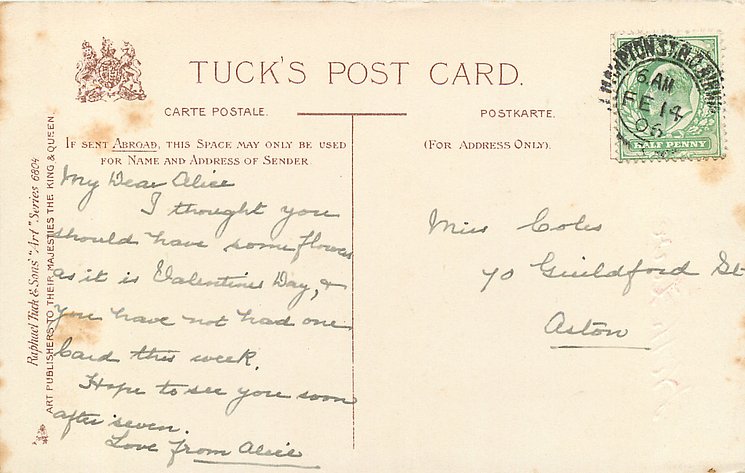 TUCK'S POST CARD.
CARTE POSTALE.
POSTKARTE.
IF SENT ABROAD, THIS SPACE MAY ONLY BE USED
FOR NAME AND ADDRESS OF SENDER
(FOR ADDRESS ONLY).
Raphael Tuck & Sons' "Art" Series 6804
ART PUBLISHERS TO THEIR MAJESTIES THE KING & QUEEN.
My Dear Alice
I thought you
should have some flowers
as it is Valentines Day, &
you have not had one
Card this week.
Hope to see you soon
after seven.
Love from Alice
Miss Coles
70 Guildford St
Aston
6 AM
FE 14
06
HALF PENNY